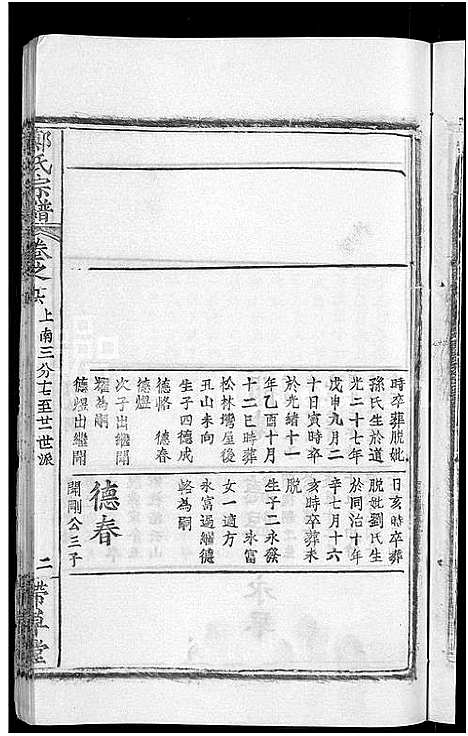 時卒葬脫妣
孫氏生於道
光二十七年
戊申九月二
十日寅時卒
於光緒十一
年乙酉十月
十二巳時葬
松林灣屋後
丑山未向
生子四德成
德榜 德春
德燈
次子出繼開
耀為嗣
德燈出繼開
日亥時卒葬
脫妣劉氏生
於同治十年
辛七月十六
亥時卒葬未
脫
生子二永發
永富
女一適方
永富過繼德
榜為嗣
德春
開剛公三子
鄭氏宗譜
卷之
上南三分七至廿一世派
二
帶草堂